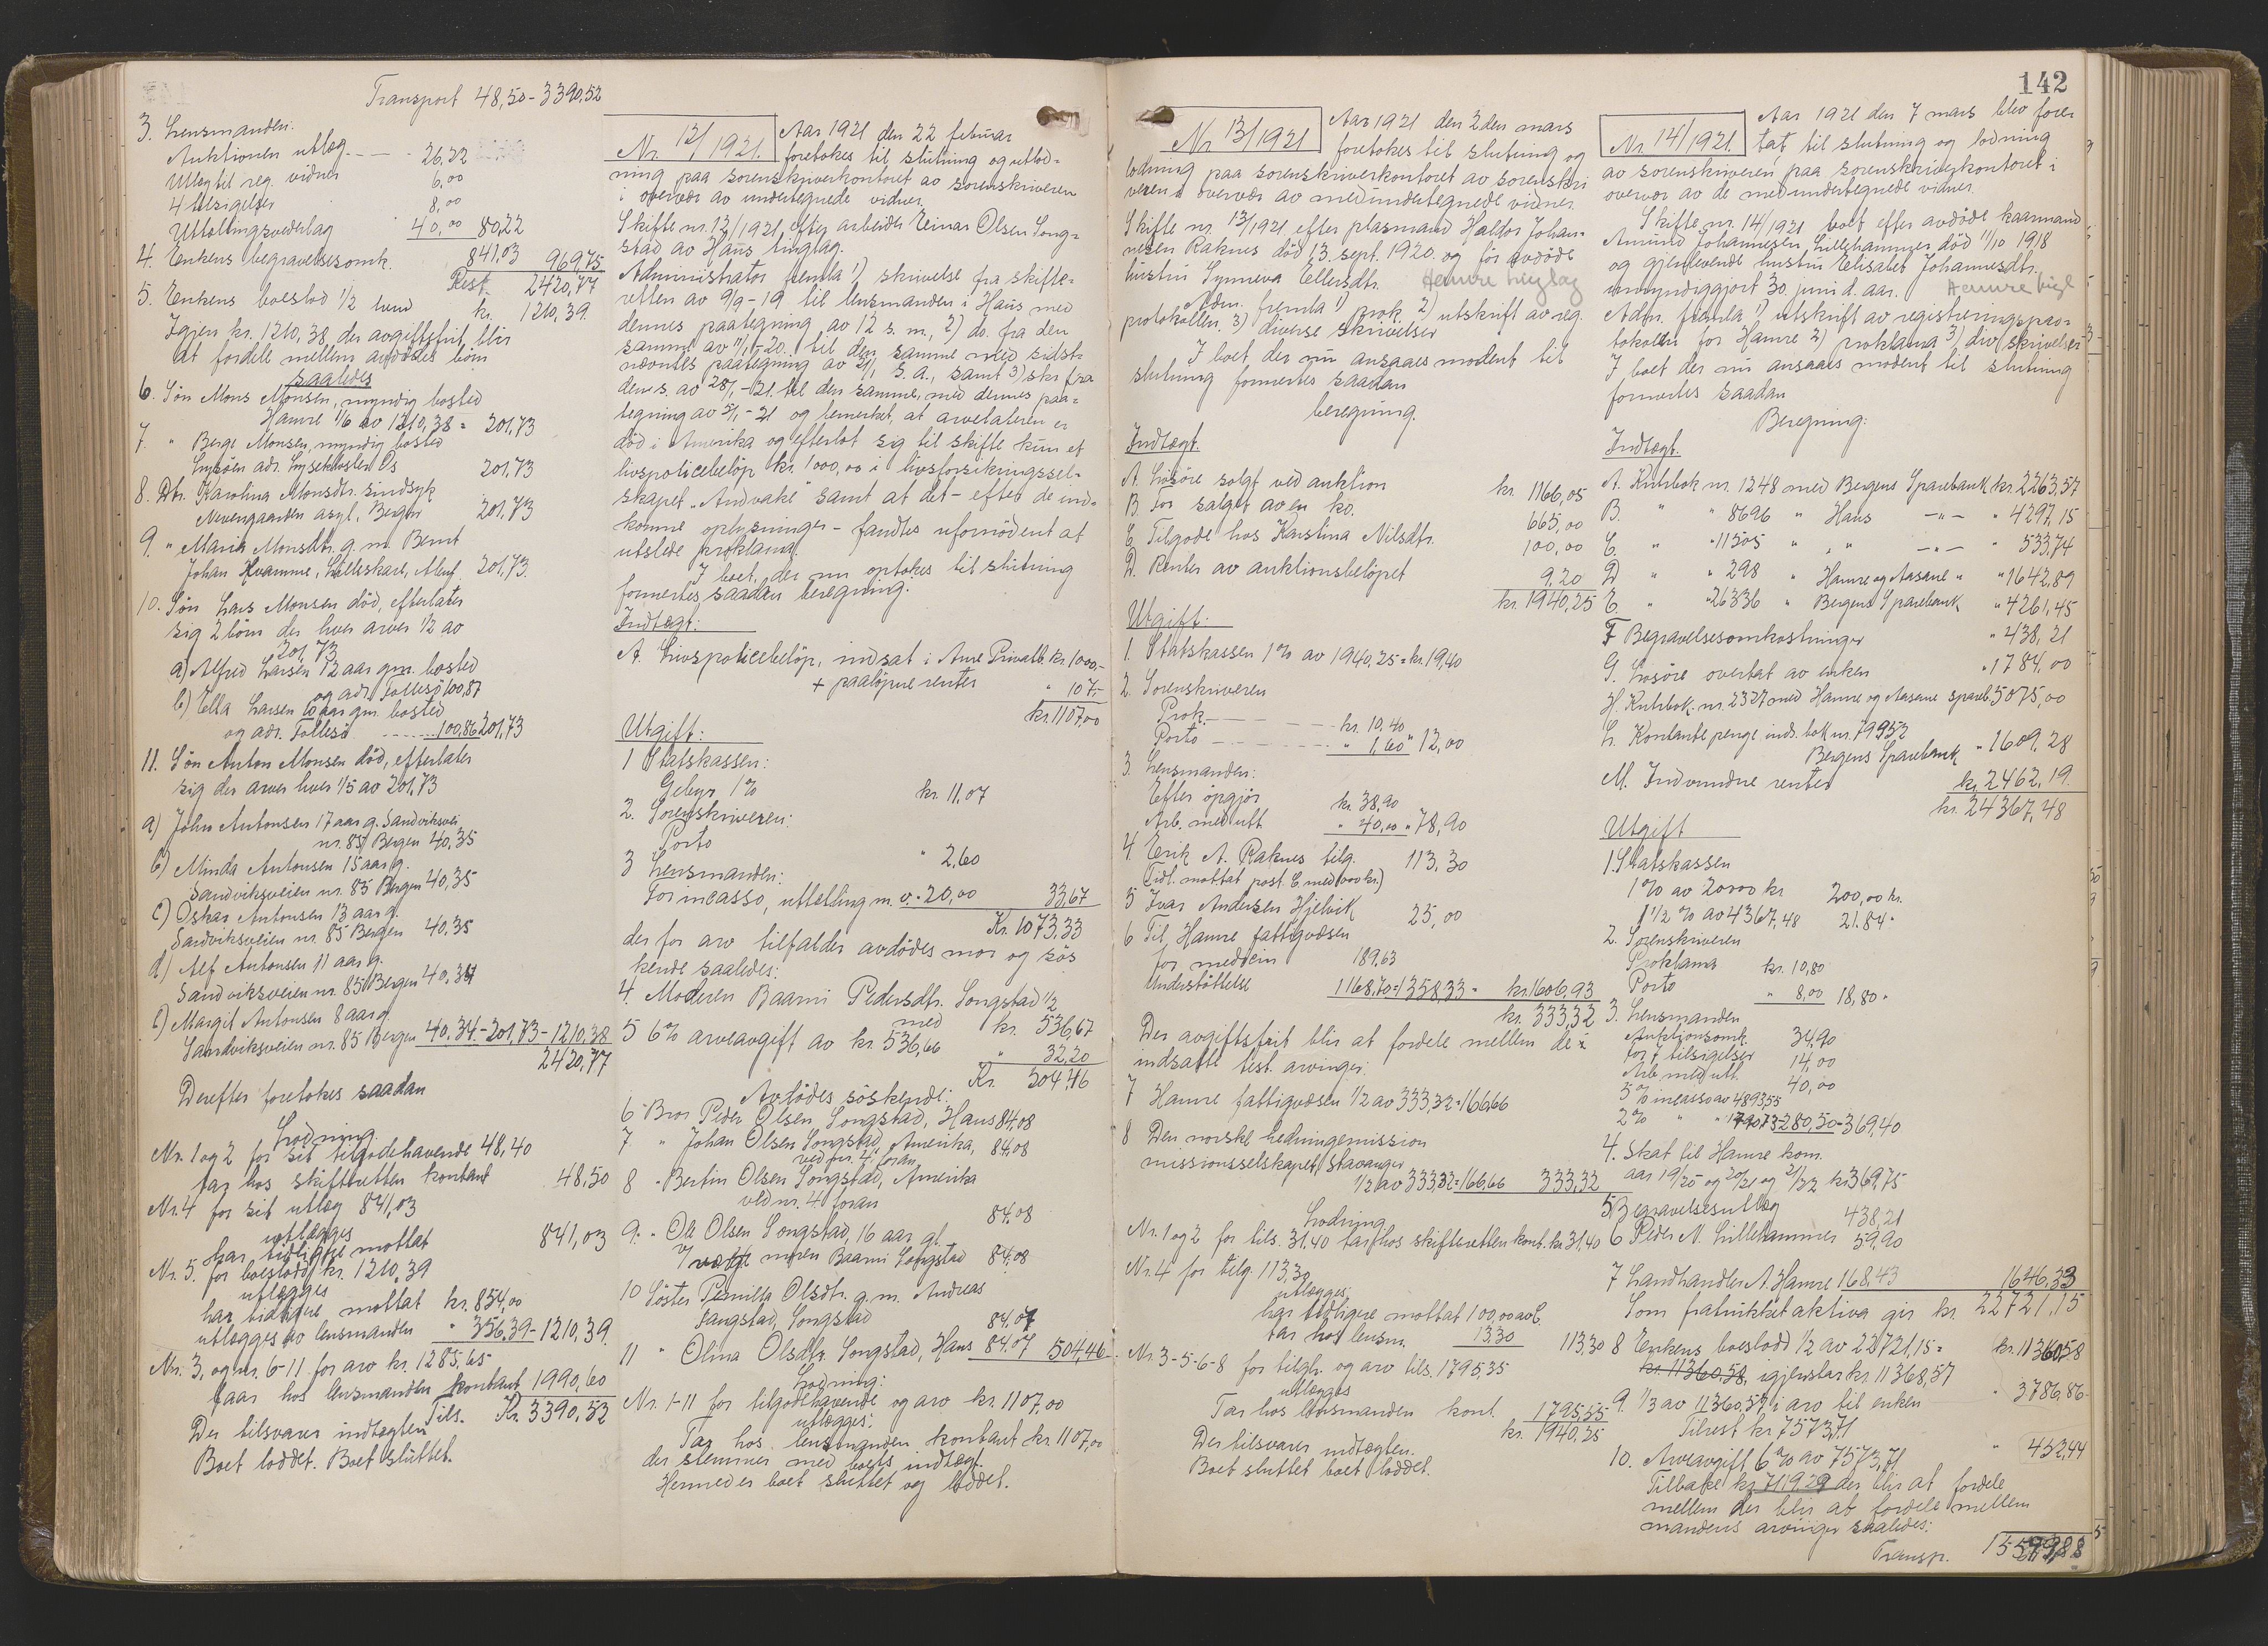 Transport 48,50 - 3390,52
3. Lensmanden:
Auktionen utlæg - - - 26,22
Utlæg til reg. vidner 6,00
4 tilsigelser 8,00
Uttællingsvederlag " 40,00 80,22
4. Enkens begravelsesomk. 841,03 969,75
Rest 2420,77
5. Enkens boeslod 1/2 kr. 1210,39.
Igjen kr. 1210,38 der avgiftsfrit blir
at fordele mellem avdødes børn
saaledes
6. Søn Mons Monsen, myndig bosted
Hamre 1/6 av 1210,38 = 201,73
7. " Berge Monsen, myndig bosted
Lysøen adr. Lysekloster Os 201,73
8. Dtr. Karolina Monsdtr. sindsyk
Nevengaarden asyl, Bergen 201,73
9. " Maria Monsdtr. g. m. Bernt
Johan Kvamme, Lilleskare, Alent. 201,73.
10. Søn Lars Monsen død, efterlater
sig 2 børn der hver arver 1/2 av
201,73
a) Alfred Larsen 12 aar gm. bosted
og adr. Follesø 100,87
b) Ella Larsen 10 aar gm. bosted
og adr. Follesø - - - - 100,86 201,73
11. Søn Anton Monsen død, efterlater
sig der arver hver 1/5 av 201,73
a) John Antonsen 17 aar g. Sandviksvei
nr. 85 Bergen 40,35
b) Minda Antonsen 15 aar g.
Sandviksveien nr. 85 Bergen 40,35
c) Oskar Antonsen 13 aar g.
Sandviksveien nr. 85 Bergen 40,35
d) Alf Antonsen 11 aar g.
Sandviksveien nr. 85 Bergen 40,34
e) Margit Antonsen 8 aar g.
Sandviksveien nr. 85 Bergen 40,34 - 201,73 - 1210,38
2420,77
Derefter foretokes saadan
Lodning.
Nr. 1 og 2 for sit tilgodehavende 48,40
tar hos skifteretten kontant 48,50
Nr. 4 for sit utlæg 841,03
utlægges
har tidligere mottat 841,03
Nr. 5. for boeslodd kr. 1210,39
utlægges
har tidligere mottat kr. 854,00
utlægges av lensmanden " 356,39 - 1210,39
Nr. 3, og nr. 6-11 for arv kr. 1285,65
faar hos lensmanden kontant 1990,60
Tils. Kr. 3390,52
Der tilsvarer indtægten
Boet loddet. Boet sluttet.
Nr. 12/1921.
Aar 1921 den 22 februar
foretokes til slutning og utlod-
ning paa sorenskriverkontoret av sorenskriveren
i overvær av undertegnede vidner
Skifte nr. 12/1921 efter arbeider Einar Olsen Song-
stad av Haus tinglag.
Administrator fremla 1) skrivelse fra skifte-
retten av 9/9-19 til lensmanden i Haus med
dennes paategning av 12 s. m., 2) do. fra den
samme av 11/1-20. til den samme med sidst-
nævntes paategning av 31/1 s. a., samt 3) skr fra
den s. av 28/1-21. til den samme, med dennes paa-
tegning av 5/1-21 og bemerket, at arvelateren er
død i Amerika og efterlot sig til skifte kun et
livspolicebeløp kr. 1000,00 i livsforsikringssel-
skapet "Andvake" samt at det - efter de ind-
komne oplysninger - fandtes ufornødent at
utstede proklama.
I boet, der nu optokes til slutning
formertes saadan beregning:
Indtægt:
A. Livspolicebeløp, indsat i Arne Privatb. kr. 1000,-
+ paaløpne renter " 107,-
kr. 1107,00
Utgift:
1 Statskassen:
Gebyr 1% kr. 11,07
2. Sorenskriveren:
Porto " 2,60
3 Lensmanden:
For incasso, uttælling m. v. - 20,00 33,67
Kr. 1073,33
der for arv tilfalder avdødes mor og søs
kende saaledes:
4. Moderen Baarni Pedersdtr. Songstad 1/2
med kr. 536,67
5 6% arveavgift av kr. 536,66 " 32,20
Kr. 504,46
Avdødes søskende:
6 Bror Peder Olsen Songstad, Haus 84,08
7. " Johan Olsen Songstad, Amerika, 84,08
ved nr. 4 foran
8 " Bertin Olsen Songstad, Amerika
ved nr. 4 foran 84,08
9. " Ole Olsen Songstad, 16 aar gl.
V/ værge moren Baarni Songstad 84,08
10 Søster Pernilla Olsdtr. g. m. Andreas
Fangstad, Songstad 84,07
11 " Olina Olsdtr. Songstad, Haus 84,07 504,46
Lodning:
Nr. 1-11 for tilgodehavende og arv kr. 1107,00
utlægges:
Tar hos lensmanden kontant kr. 1107,00
der stemmer med boets indtægt.
Hermed er boet sluttet og loddet.
142
Nr 13/1921
Aar 1921 den 2den mars
foretokes til slutning og
lodning paa sorenskriverkontoret av sorenskri
veren i overvær av medundertegnede vidner.
Skifte nr. 13/1921 efter plasmand Haldor Johan-
nesen Raknes død 13. sept. 1920. og før avdøde
hustru Synneva Ellersdtr. Hamre tinglag
Adm. fremla 1) prok. 2) utskrift av reg.
protokollen. 3) diverse skrivelser
I boet der nu ansaaes modent til
slutning formertes saadan
beregning.
Indtægt.
A. Løsøre solgt ved auktion kr. 1166,05
B For salget av en ko. 665,00
C Tilgode hos Karstina Nilsdtr. 100,00
D. Renter av auktionsbeløpet 9,20
kr. 1940,25
Utgift:
1. Statskassen 1% av 1940,25 = kr. 19,40
2. Sorenskriveren
Prok. - - - - kr. 10,40
Porto - - - - " 1,60 " 12,00
3. Lensmanden:
Efter opgjør kr. 38,90
Arb. med utl. " 40,00 " 78,90
4. Erik A. Raknes tilg. 113,30
(Tidl. mottat post C. med 100 kr.)
5 Ivar Andersen Hjelvik 25,00
6 Til Hamre fattigvæsen
for medicin 189,63
Understøttelse 1168,70 = 1358,33 - kr. 1606,93
kr. 333,32
Der avgiftsfrit blir at fordele mellem de i
indsatte test. arvinger:
7 Hamre fattigvæsen 1/2 av 333,32 = 166,66
8 Den norske hedningemission
missionsselskapet, Stavanger
1/2 av 333,32 = 166,66 333,32
Lodning
Nr. 1 og 2 for tils. 31,40 tar hos skifteretten kont. kr. 31,40
Nr. 4 for tilg. 113,30
utlægges
har tidligere mottat 100,00 avl.
tar hos lensm. 13,30 113,30
Nr. 3-5-6-8 for tilgh. og arv tils. 1795,35
utlægges
Tar hos lensmanden kont. 1795,55
kr. 1940,25
Der tilsvarer indtægten.
Boet sluttet boet loddet.
Nr. 14/1921.
Aar 1921 den 7 mars blev fore
tat til slutning og lodning
av sorenskriveren paa sorenskriverkontoret i
overvær av de medundertegnede vidner.
Skifte nr. 14/1921 boet efter avdøde kaarmand
Amund Johannesen, Lillehammer, død 11/10 1918
og gjenlevende hustru Elisabet Johannesdtr.
umyndiggjort 30. juni d. aar. Hamre tingl
Adm. fremla 1) utskrift av registreringspro-
tokollen for Hamre 2) proklama 3) div skrivelser
I boet der nu ansaaes modent til slutning
formertes saadan
Beregning:
Indtægt.
A. Kuhrbok nr. 1248 med Bergens Sparebank kr. 2263,57
B. " " 8696 " Haus - " - " 4297,15
C. " " 11505 " " " - " - " 533,74
D " " 298 " Hamre og Aasane " " 1642,89
E. " " 26336 " Bergens Sparebank " 4261,45
F Begravelsesomkostninger " 438,21
G. Løsøre overtat av enken " 1784,00
H. Kuhrbok. nr. 2327 med Hamre og Aasane spareb 5075,00
L. Kontante penge inds. bok nr. 79952
Bergens Sparebank " 1609,28
M. Indvundne renter kr. 2462,19.
kr. 24367,48
Utgift
1. Statskassen
1% av 20000 kr 200,00 kr.
1/2 % av 4367,48 21.84 "
2. Sorenskriveren
Proklama kr. 10,80
Porto " 8,00 18,80 "
3. Lensmanden
Auktionsomk. 34,90
for 7 tilsigelser 14,00
Arb. med utl. 40,00
5% incasso av 4893,55
2% " " 280,50 - 369,40
4. Skat til Hamre kom.
aar 19/20 og 20/21 og 21/22 kr. 369,75
5 Begravelsesutlæg 438,21
6 Peder N. Lillehammer 59,90
7 Landhandler A. Hamre 168,43 1646,33
Som fratrukket aktiva gir kr. 22721,15
8 Enkens boeslodd 1/2 av 22721,15 = kr. 11360,58
kr. 11360,58, igjenstar kr. 11368,57
9. 1/3 av 11360,57 i arv til enken " 3786,86
Tilrest kr 7573,71
10. Arveavgift 6% av 7573,71 " 454,44
Tilbake kr 7119,29 der blir at fordele
mellem der blir at fordele mellem
mandens arvinger saaledes:
Transp.